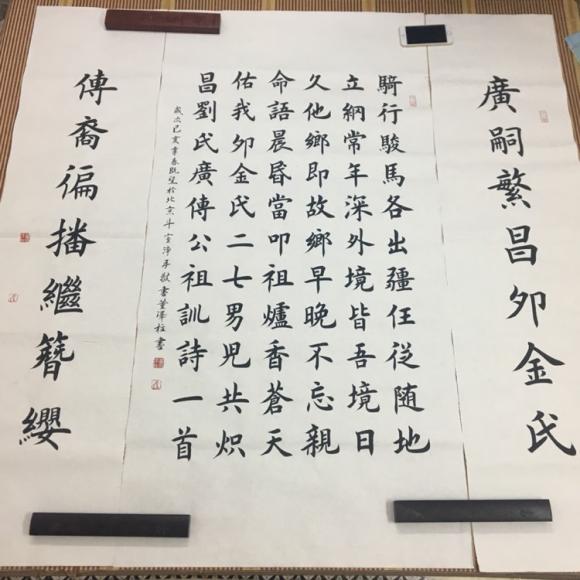 廣嗣繁昌夘金氏
騎行駿馬各出疆任從随地
立綱常年深外境皆吾境日
久他鄉即故鄉早晚不忘親
命語晨昏當叩祖爐香蒼天
佑我夘金氏二七男兒共炽
昌劉氏廣傳公祖訓詩一首
歲次己亥季春既望於北京斗室淨手敬書
傳裔偏播繼簪纓